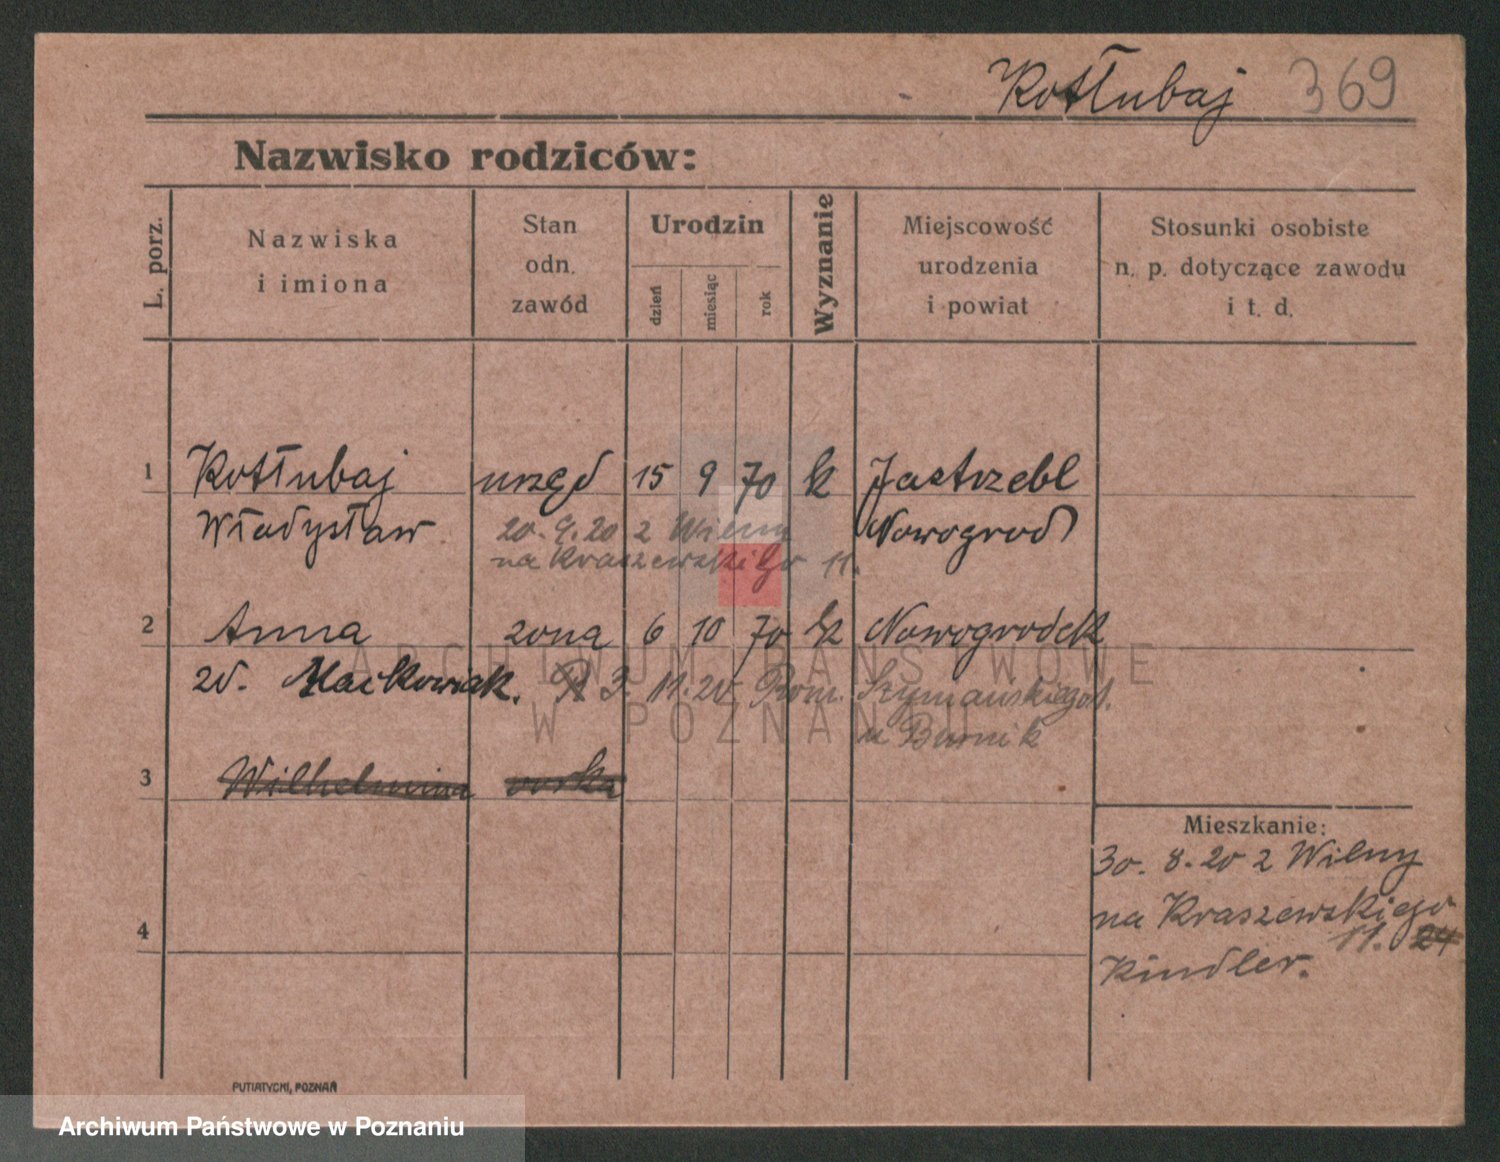 Kotłubaj 369
Nazwisko rodziców:
L. porz.
Nazwiska
i imiona
Stan
odn.
zawód
Urodzin
dzień
miesiąc
rok
Wyznanie
Miejscowość
urodzenia
i powiat
Stosunki osobiste
n. p. dotyczące zawodu
i t. d.
1 Kotłubaj urzęd 15 9 70 k Jastrzebl
Władysław Nowogrod
20. 9. 20 z Wilny
na Kraszewskiego 11.
2 Anna zona 6 10 70 k Nowogrodek
zd. Mackowiak. 3. 11. 20 Szymańskiego
3 Wilhelmina
Mieszkanie:
30. 8. 20 z Wilny
na Kraszewskiego
11. 24
Kindler.
4
ARCHIWUM PAŃSTWOWE
W POZNANIU
PUTIATYCKI, POZNAŃ
Archiwum Państwowe w Poznaniu